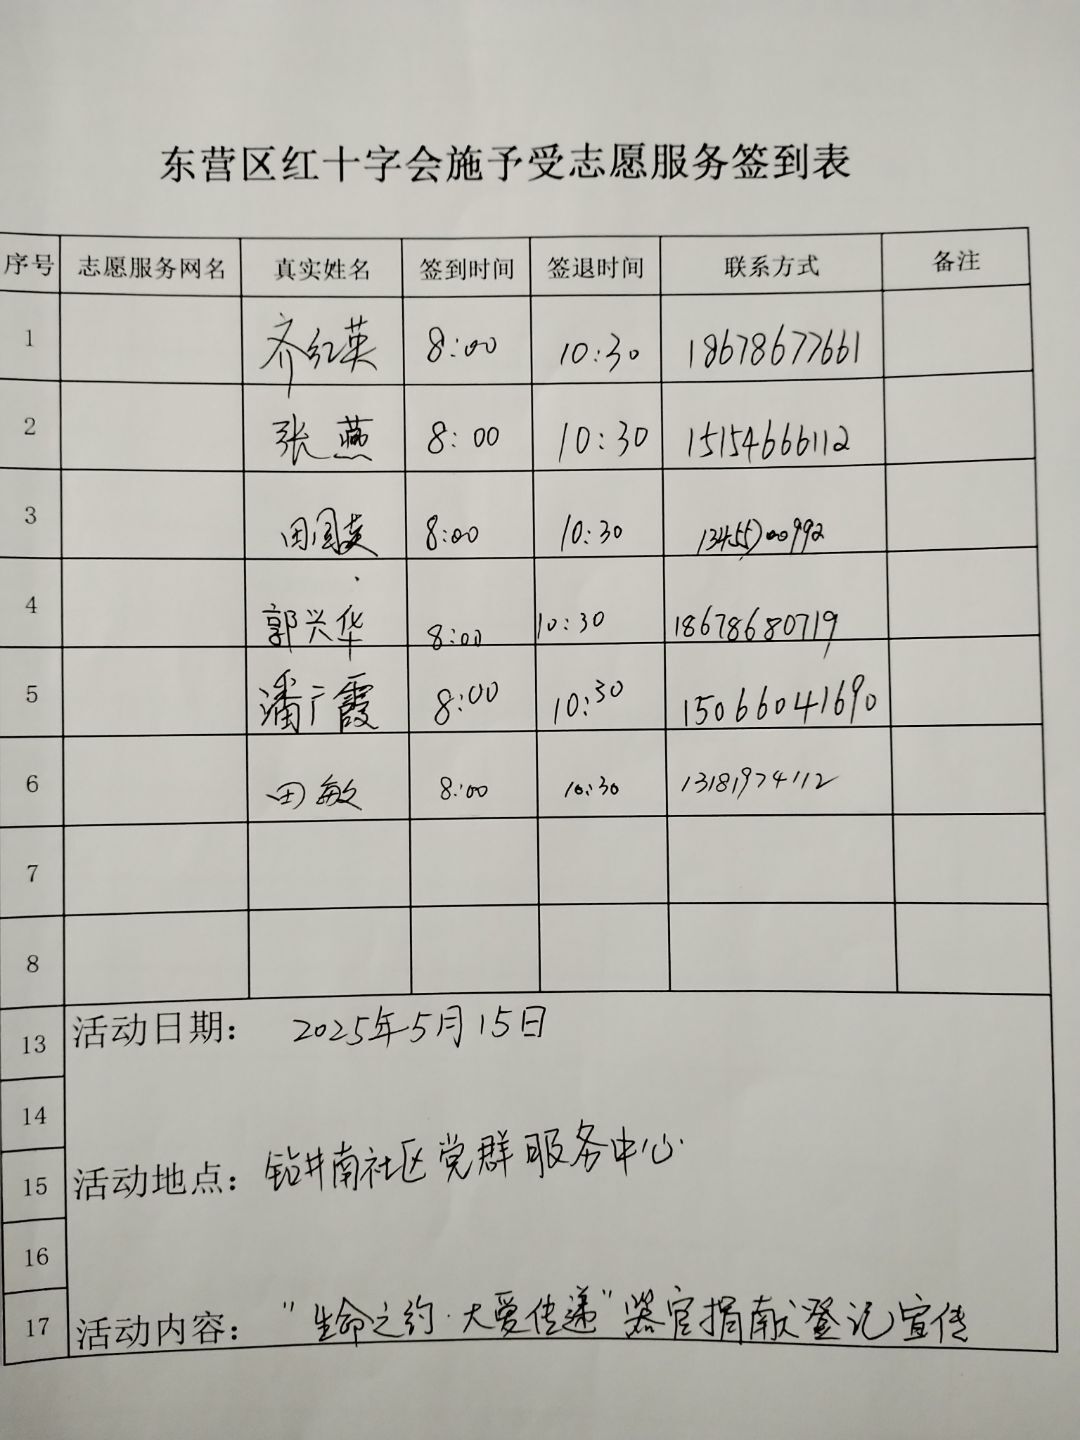 东营区红十字会施予受志愿服务签到表
序号 志愿服务网名 真实姓名 签到时间 签退时间 联系方式 备注
1 齐红英 8:00 10:30 18678677661
2 张燕 8:00 10:30 15154666112
3 田国英 8:00 10:30
4 郭兴华 8:00 10:30 18678680719
5 潘广霞 8:00 10:30 15066041690
6 田敏 8:00 10:30 13181974112
7
8
13 活动日期: 2025年5月15日
14
15 活动地点: 钻井南社区党群服务中心
16
17 活动内容: “生命之约·大爱传递”器官捐献登记宣传